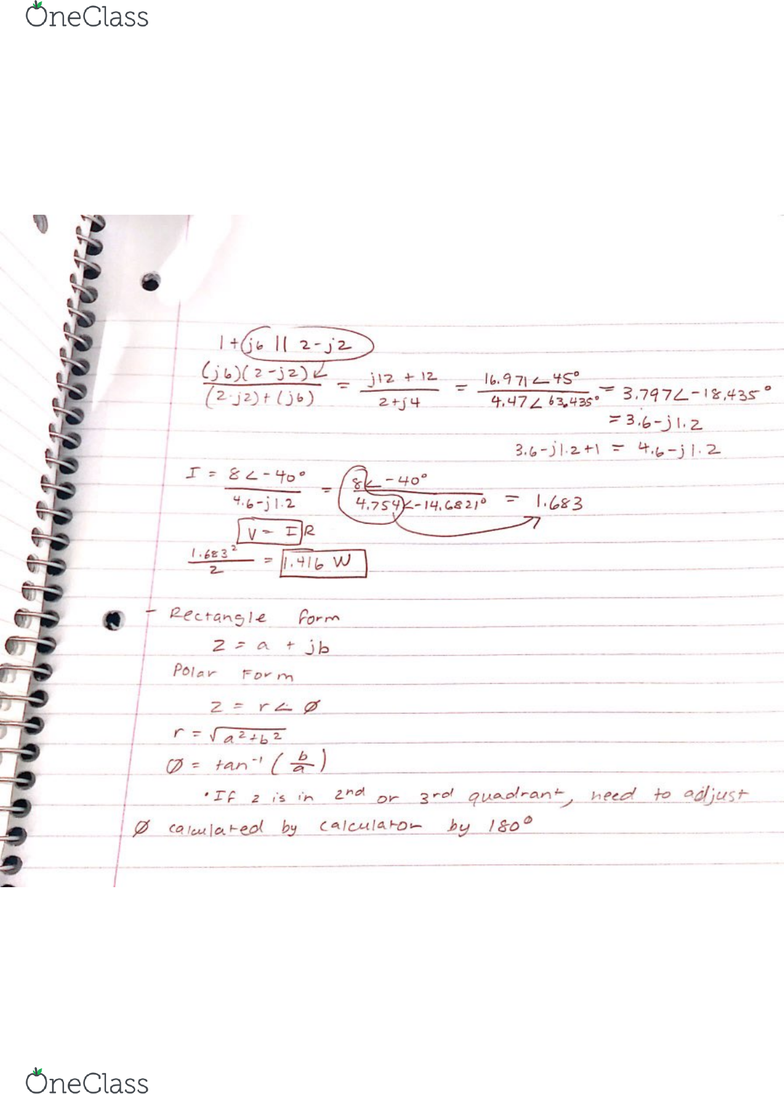 OneClass
1+(j6 || 2-j2
(j6)(2-j2) / (2-j2)+(j6) = j12 + 12 / 2+j4 = 16.971∠45° / 4.47∠63.435° = 3.797∠-18.435°
= 3.6-j1.2
3.6-j1.2+1 = 4.6-j1.2
I = 8∠-40° / 4.6-j1.2 = 8∠-40° / 4.754∠-14.6821° = 1.683
V = IR
1.683² / 2 = 1.416 W
- Rectangle form
z = a + jb
Polar Form
z = r∠Ø
r = √a²+b²
Ø = tan⁻¹(b/a)
• If z is in 2nd or 3rd quadrant, need to adjust
Ø calculated by calculator by 180°
OneClass